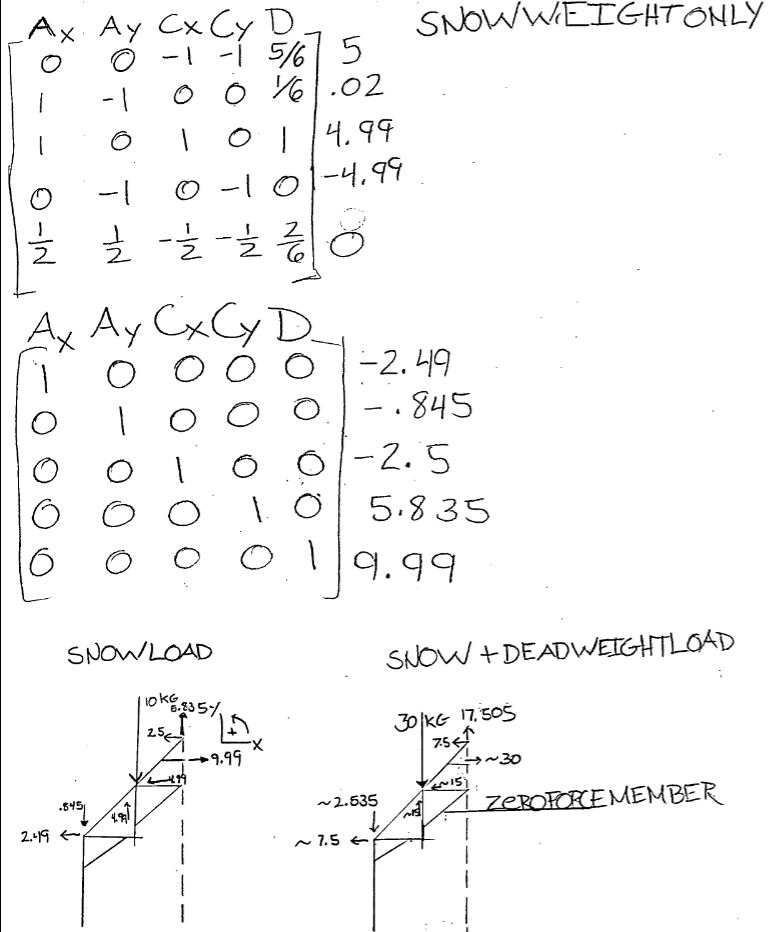 SNOW WEIGHT ONLY
Ax Ay Cx Cy D
0 0 -1 -1 5/6 5
1 -1 0 0 1/6 .02
1 0 1 0 1 4.99
0 -1 0 -1 0 -4.99
1/2 1/2 -1/2 -1/2 2/6 0
Ax Ay Cx Cy D
1 0 0 0 0 -2.49
0 1 0 0 0 -.845
0 0 1 0 0 -2.5
0 0 0 1 0 5.835
0 0 0 0 1 9.99
SNOW LOAD
10 KG
5.835 Y
2.5
+
X
9.99
4.99
.845
4.99
2.49
SNOW + DEADWEIGHT LOAD
30 KG
17.505
7.5
~30
~15
ZERO FORCE MEMBER
~2.535
~15
~7.5